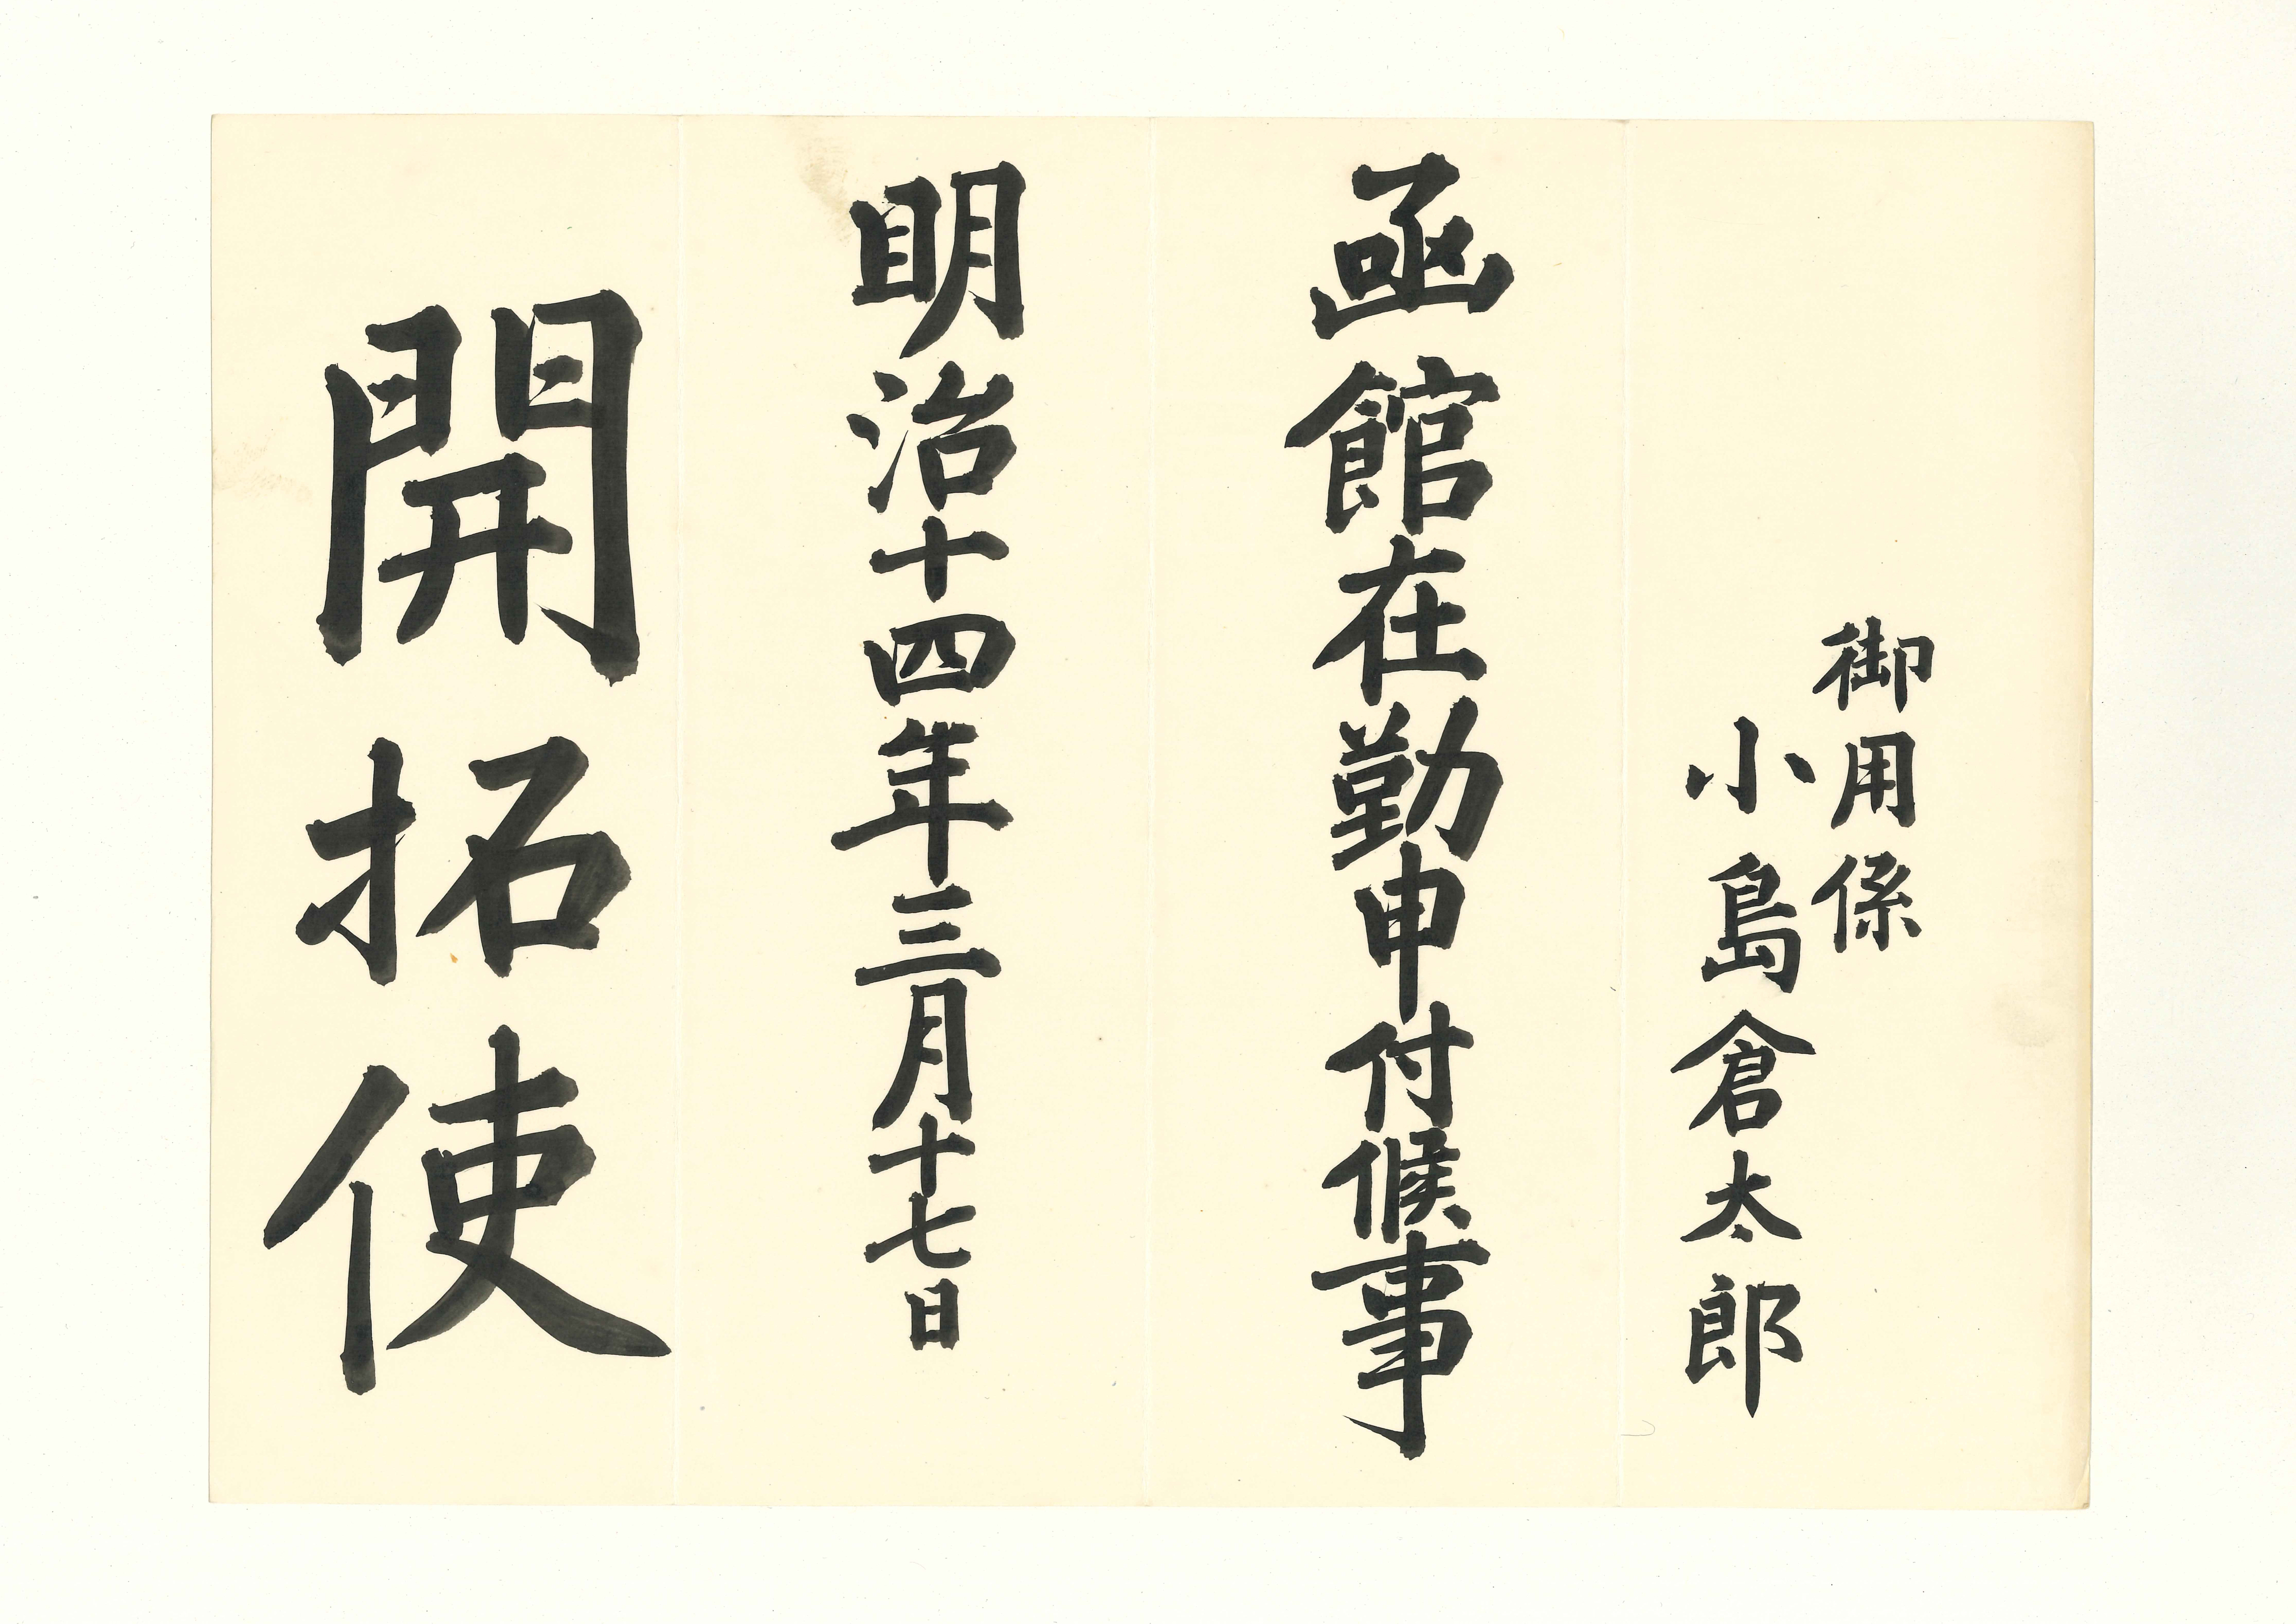 御用係
小島倉太郎
函館在勤申付候事
明治十四年三月十七日
開拓使